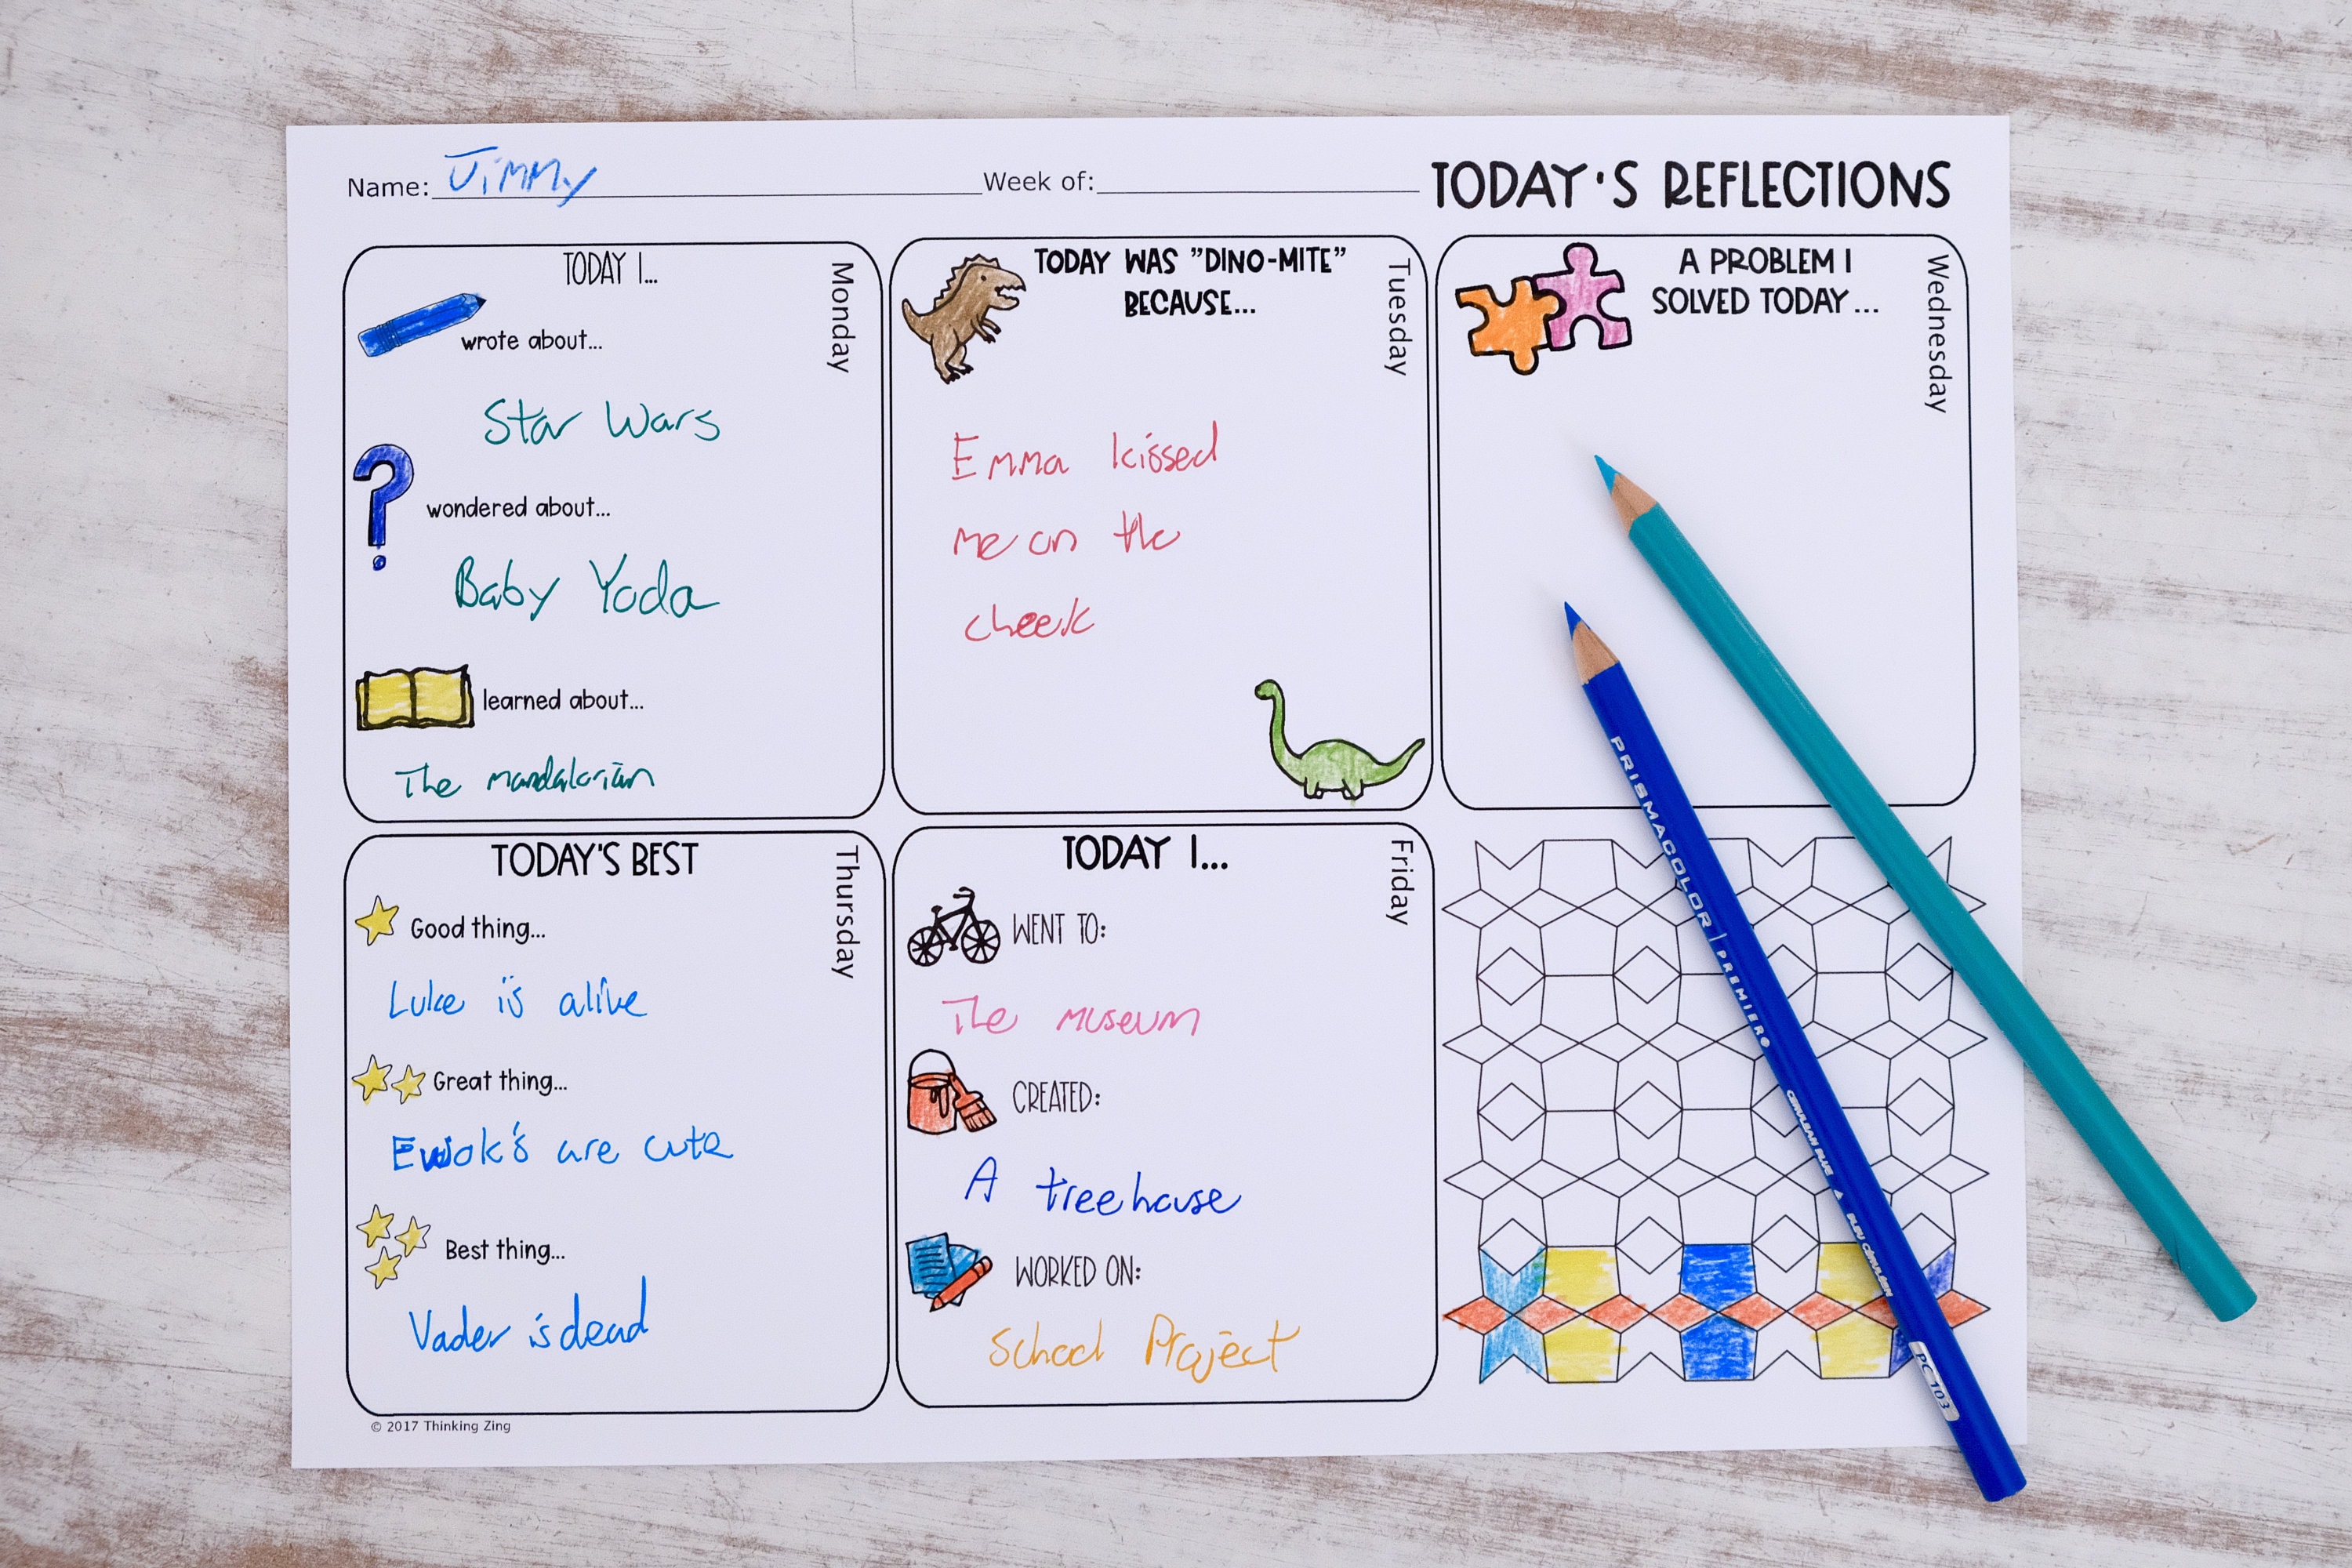 Name: Jimmy Week of: TODAY'S REFLECTIONS
Monday
TODAY I...
wrote about...
Star Wars
wondered about...
Baby Yoda
learned about...
The mandalorian
Tuesday
TODAY WAS "DINO-MITE"
BECAUSE...
Emma kissed
me on the
cheek
Wednesday
A PROBLEM I
SOLVED TODAY...
Thursday
TODAY'S BEST
Good thing...
Luke is alive
Great thing...
Ewok's are cute
Best thing...
Vader is dead
Friday
TODAY I...
WENT TO:
The museum
CREATED:
A treehouse
WORKED ON:
School Project
© 2017 Thinking Zing
PRISMACOLOR | PREMIER
CERULEAN BLUE
PC 103